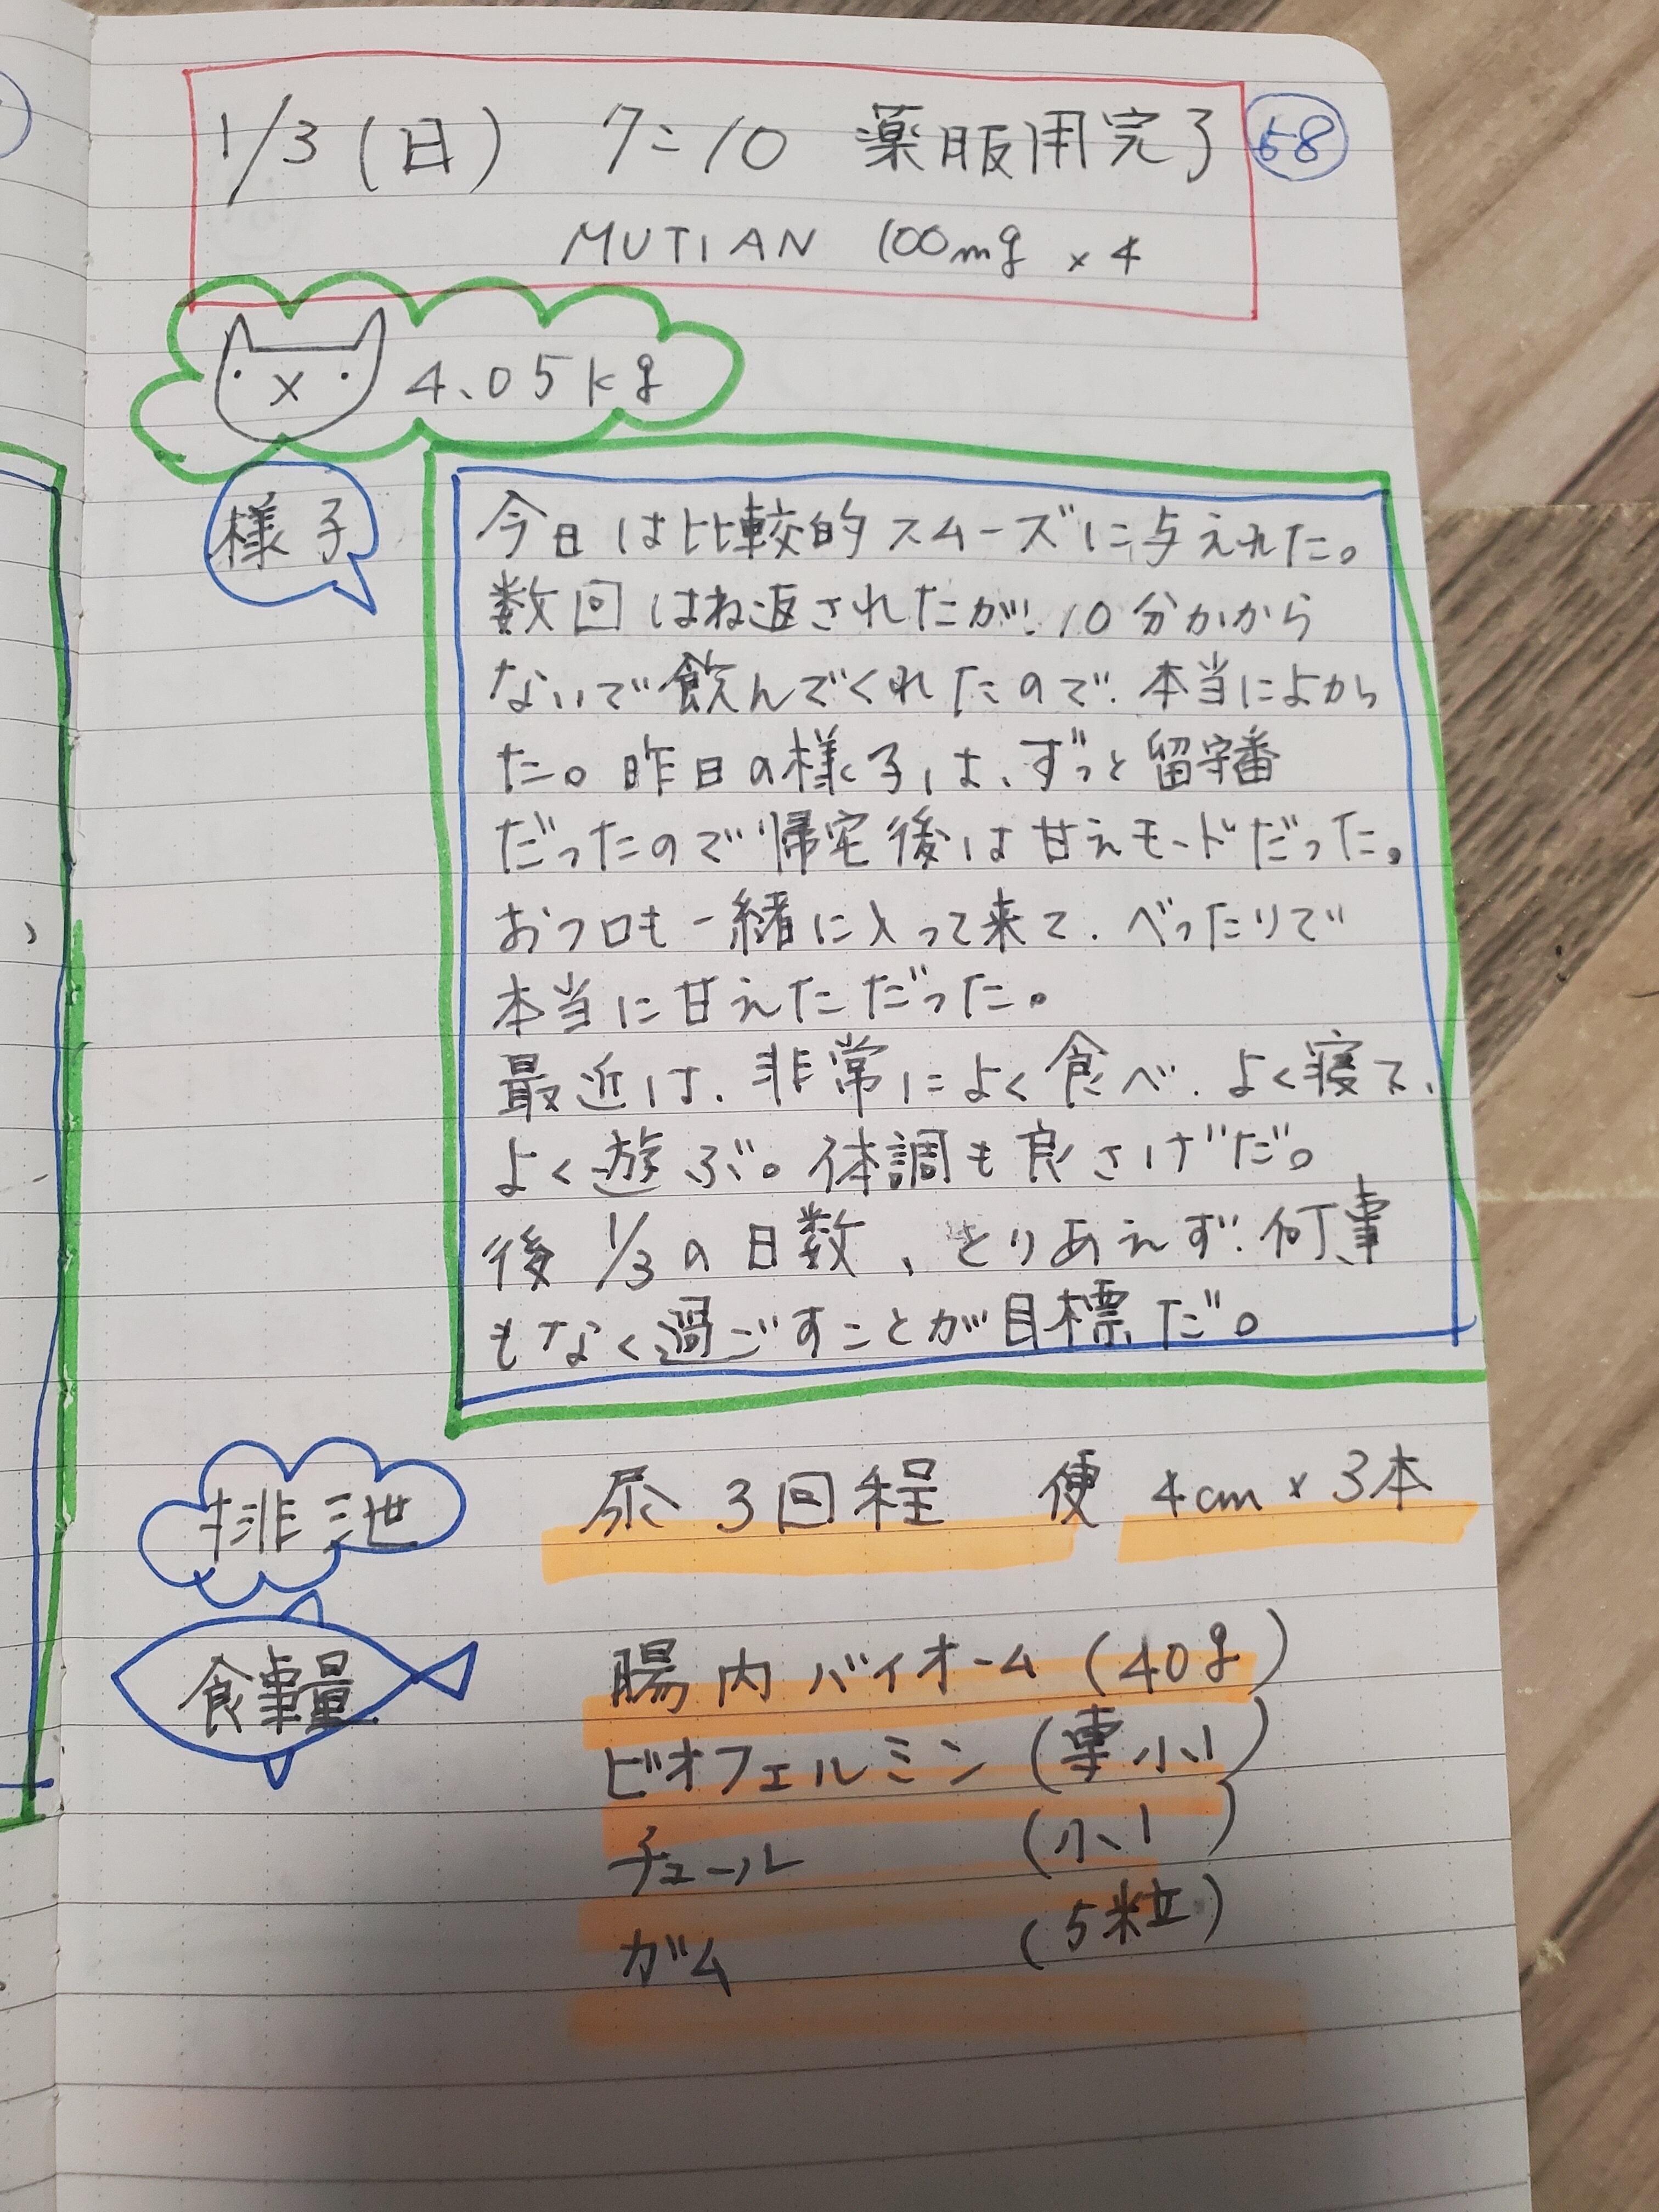 1/3(日) 7:10 薬服用完了 58
MUTIAN 100mg ×4
4.05kg
様子
今日は比較的スムーズに与えれた。
数回はね返されたが、10分かから
ないで飲んでくれたので、本当によかっ
た。昨日の様子は、ずっと留守番
だったので帰宅後は甘えモードだった。
おフロも一緒に入って来て、べったりで
本当に甘えただった。
最近は、非常によく食べ、よく寝て、
よく遊ぶ。体調も良さげだ。
後1/3の日数、とりあえず、何事
もなく過ごすことが目標だ。
排泄
尿 3回程 便 4cm×3本
食事量
腸内バイオーム(40g)
ビオフェルミン(小1)
チュール(小1)
ガム(5粒)